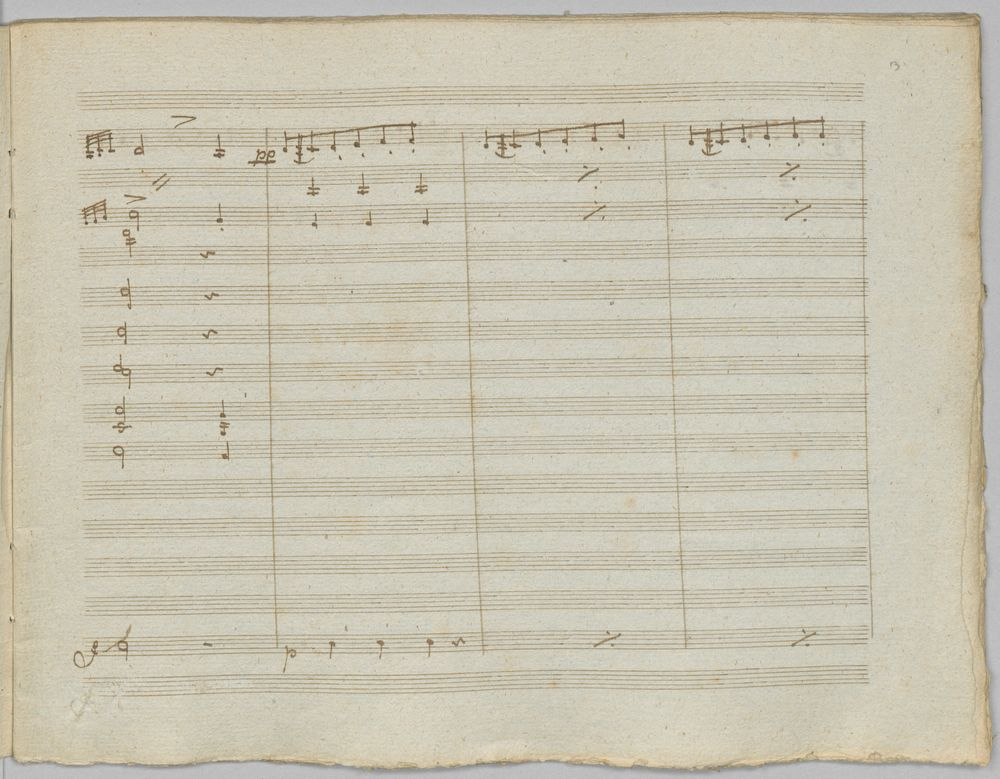 3
pp
p